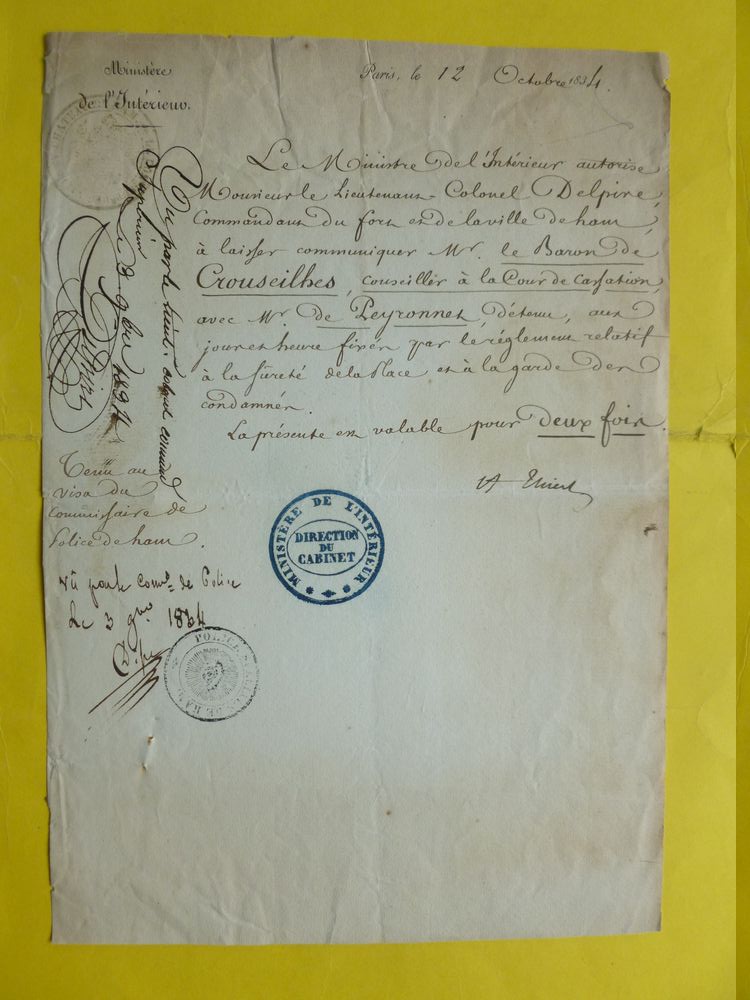 Ministère
de l'Intérieur.
Paris, le 12 Octobre 1834.
Le Ministre de l'Intérieur autorise
Monsieur le Lieutenant-Colonel Delpire,
Commandant du fort et de la ville de ham,
à laisser communiquer Mr. le Baron de
Crouseilhes, conseiller à la Cour de Cassation,
avec Mr. de Peyronnet, détenu, aux
jour et heure fixés par le réglement relatif
à la sûreté de la Place et à la garde des
condamnés.
La présente est valable pour deux fois.
A Thiers
Vu par le lieut. colonel command
le 3 9bre 1834
Delpire
Tenu au
visa du
Commissaire de
Police de ham.
Vû par le Comre de Police
Le 3 9bre 1834
MINISTÈRE DE L'INTÉRIEUR
DIRECTION
DU
CABINET
POLICE